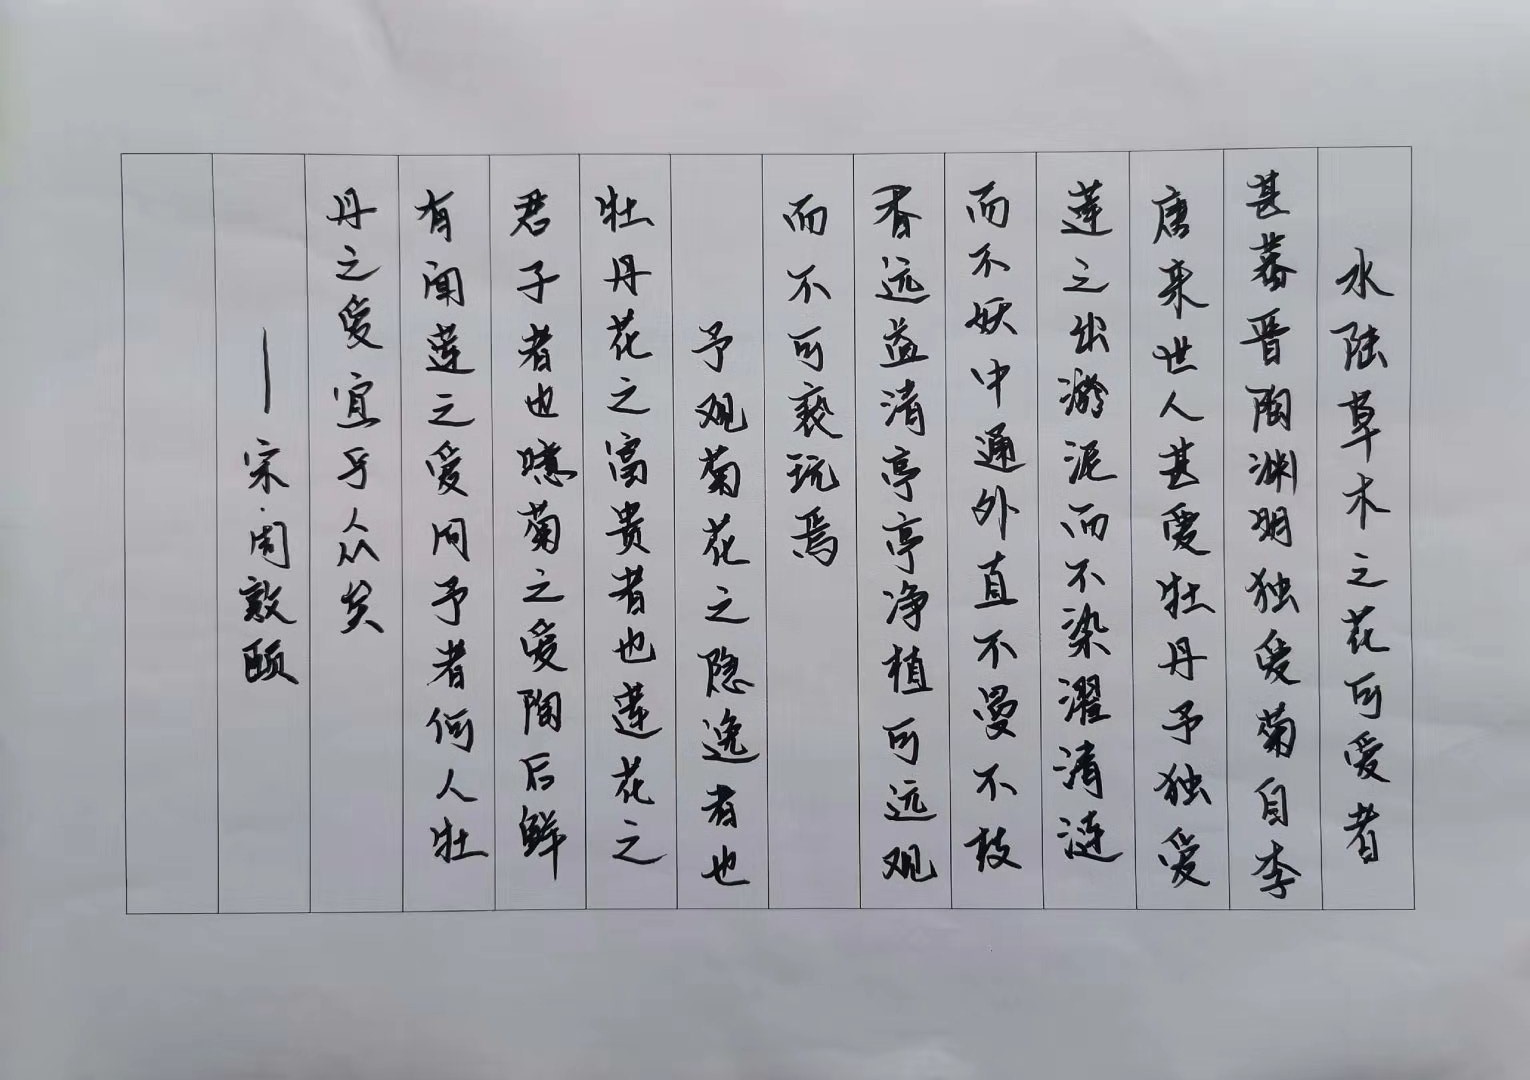 水陆草木之花可爱者
甚蕃晋陶渊明独爱菊自李
唐来世人甚爱牡丹予独爱
莲之出淤泥而不染濯清涟
而不妖中通外直不蔓不枝
香远益清亭亭净植可远观
而不可亵玩焉
予观菊花之隐逸者也
牡丹花之富贵者也莲花之
君子者也噫菊之爱陶后鲜
有闻莲之爱同予者何人牡
丹之爱宜乎众矣
—宋·周敦颐